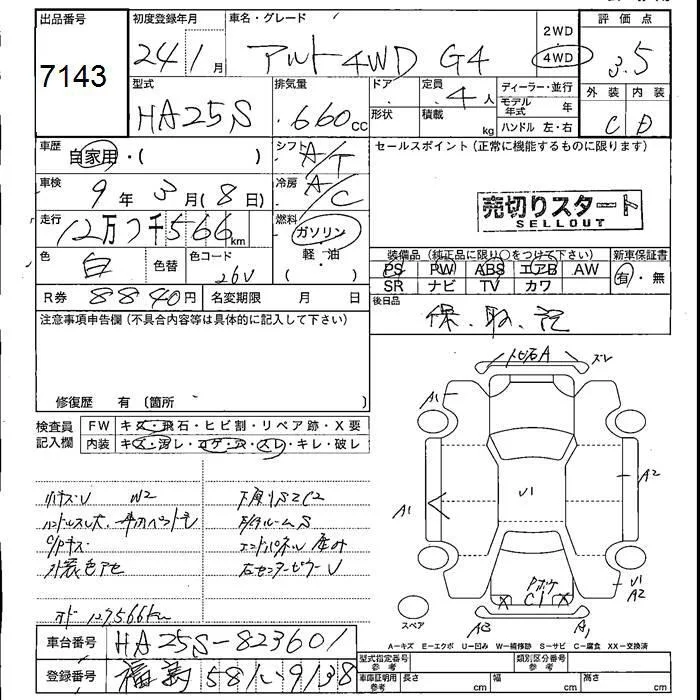 出品番号 初度登録年月 車名・グレード 2WD 4WD 評価点
7143 24 1 月 アルト 4WD G4 3.5
型式 排気量 ドア 定員 ディーラー・並行 外装 内装
HA25S 660cc 形状 4人 モデル年式 年 C D
積載 kg ハンドル 左・右
車歴 自家用・( ) シフト A/T セールスポイント(正常に機能するものに限ります)
車検 9年3月(8日) 冷房 A/C
売切りスタート
SELLOUT
走行 12万7千566km 燃料 ガソリン 軽・油 ( )
色 白 色替 色コード 26V
装備品(純正品に限り○をつけて下さい) 新車保証書
PS PW ABS エアB AW 有・無
SR ナビ TV カワ
R券 8840円 名変期限 月 日 後日品
保.取.記
注意事項申告欄(不具合内容等は具体的に記入して下さい)
修復歴 有(箇所
検査員記入欄 FW キズ・飛石・ヒビ割・リペア跡・X要
内装 キズ・汚レ・コゲ・穴・スレ・キレ・破レ
W2
ハンドルスレ大
C/Pキズ
外装色アセ
下廻りS2C2
エンドパネル歪み
右センターピラーU
127,566km
トビ石A ズレ
A1
A2
A1
U1
U1
A2
C1
X X
A3 A1
スペア
A−キズ E−エクボ U−凹み W−補修跡 S−サビ C−腐食 XX−交換済
車台番号 HA25S-823601
型式指定番号 参考 類別区分番号 参考
登録番号 581 い 9138
車庫証明用参考 長さ cm 幅 cm 高さ cm